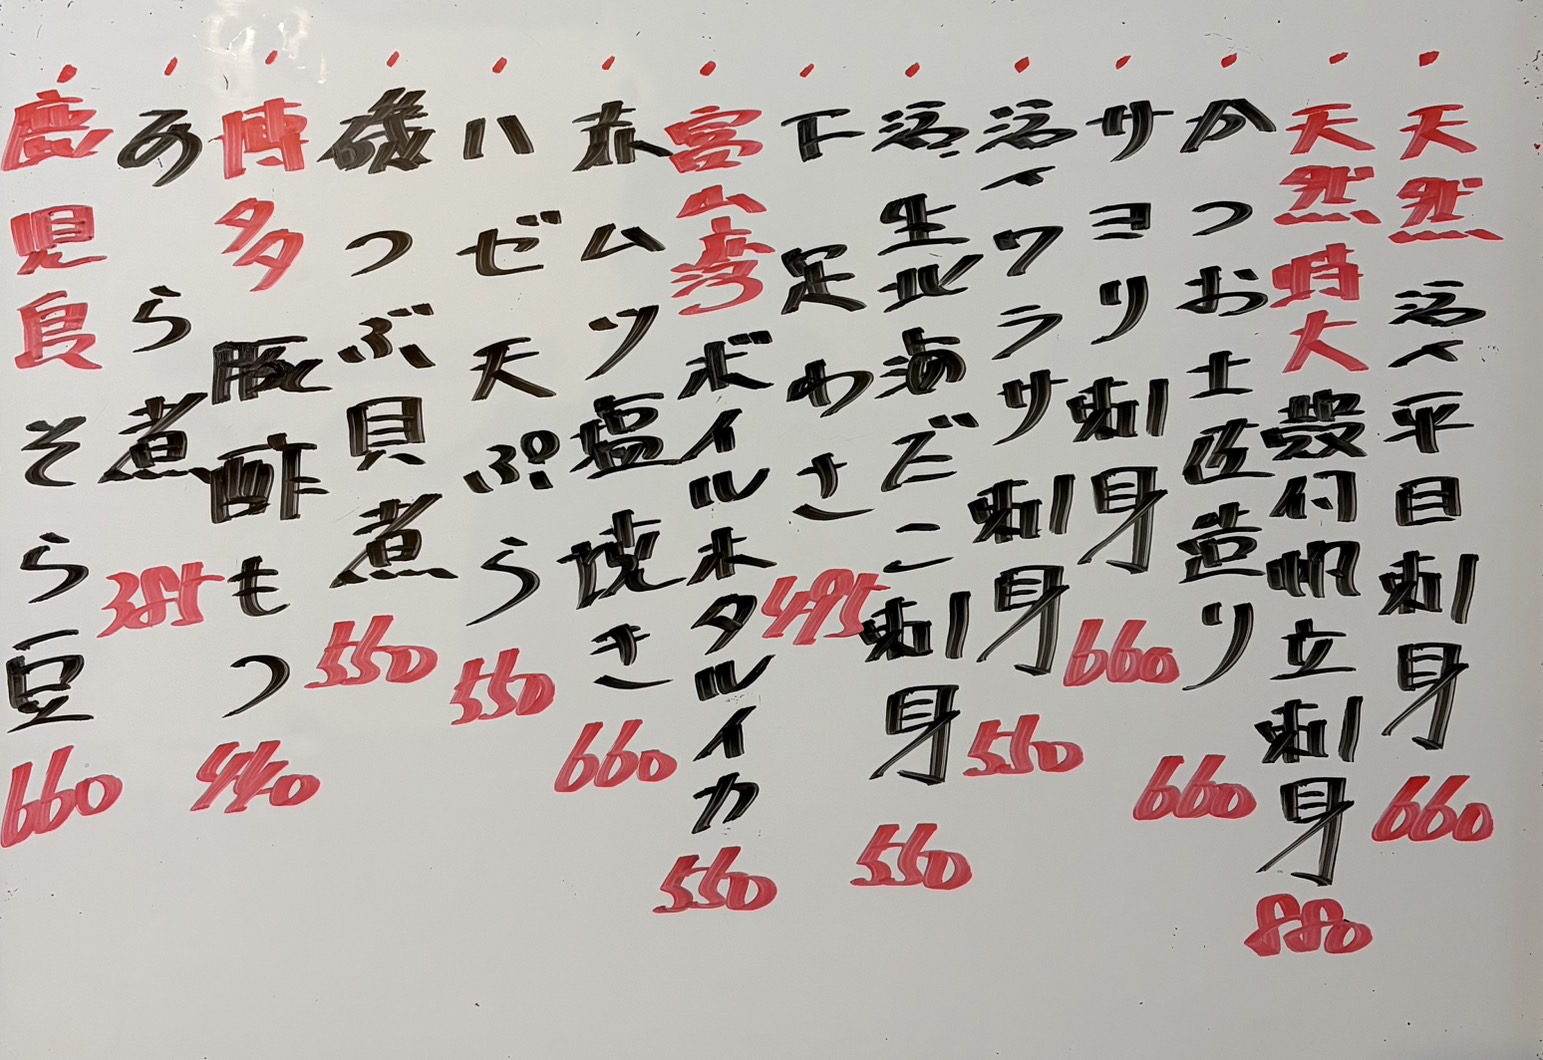 ・天然活〆平目刺身 660
・天然特大殻付帆立刺身 880
・かつお土佐造り 660
・サヨリ刺身 660
・活〆ワラサ刺身 550
・活生北海だこ刺身 550
・下足わさ 495
・富山湾ボイルホタルイカ 550
・赤ムツ塩焼き 660
・ハゼ天ぷら 550
・磯つぶ貝煮 550
・博多豚酢もつ 440
・あら煮 385
・鹿児島そら豆 660